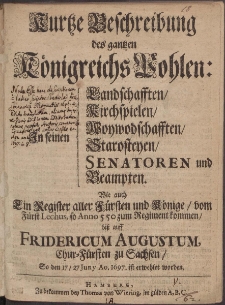 Kurtze Beschreibung
des gantzen
Königreichs Pohlen:
In seinen
Landschafften/
Kirchspielen/
Woywodschafften/
Starosteyen/
SENATOREN und
Beampten.
Wie auch
Ein Register aller Fürsten und Könige/ vom
Fürst Lechus, so Anno 550 zum Regiment kommen/
biß auff
FRIDERICUM AUGUSTUM,
Chur-Fürsten zu Sachsen/
So den 17/27 Juny Ao. 1697. ist erwehlet worden.
HAMBURG:
Zu bekommen bey Thomas von Wiering, im gülden A.B.C.